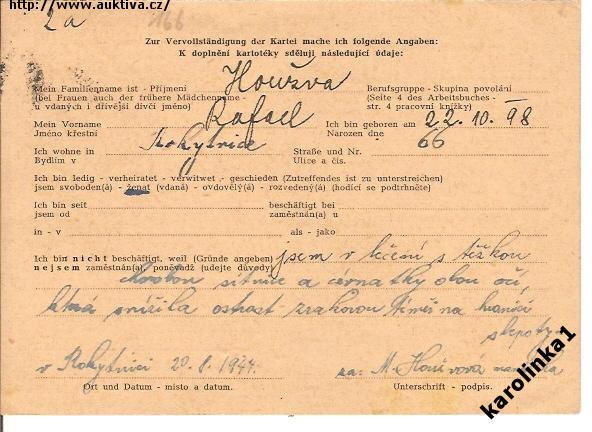 http://www.auktiva.cz/
2a
166
Zur Vervollständigung der Kartei mache ich folgende Angaben:
K doplnění kartotéky sděluji následující údaje:
Mein Familienname ist - Příjmení Houžva Berufsgruppe - Skupina povolání
(bei Frauen auch der frühere Mädchenname - (Seite 4 des Arbeitsbuches -
u vdaných i dřívější dívčí jméno) str. 4 pracovní knížky)
Mein Vorname Rafael Ich bin geboren am 22.10.98
Jméno křestní Narozen dne
Ich wohne in Rokytnice Straße und Nr. 66
Bydlím v Ulice a čís.
Ich bin ledig - verheiratet - verwitwet - geschieden (Zutreffendes ist zu unterstreichen)
jsem svoboden(á) - ženat (vdaná) - ovdovělý(á) - rozvedený(á) (hodící se podtrhněte)
Ich bin seit beschäftigt bei
jsem od zaměstnán(a) u
in - v als - jako
Ich bin nicht beschäftigt, weil (Gründe angeben) jsem v léčení s těžkou
nejsem zaměstnán(a) poněvadž (udejte důvody)
chorobou sítnice a cévnatky obou očí,
která snížila ostrost zrakovou téměř na hranici
slepoty.
v Rokytnici 20.8.1944. za: M. Houžvová manželka
Ort und Datum - místo a datum. Unterschrift - podpis.
karolinka1